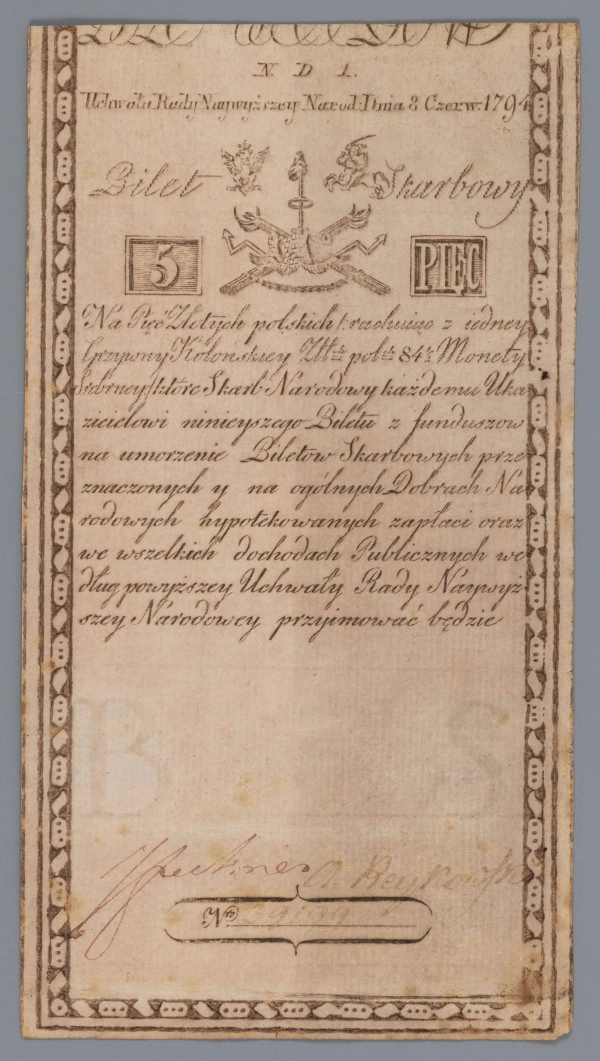 N D 1.
Uchwała Rady Naywyższey Narod: Dnia 8 Czerw: 1794
Bilet Skarbowy
5 PIĘC
Na Pięć Złotych polskich /: rachuiąc z iedney
Grzywny Kolońskiey Złt. pol. 84½ Monety
Srebrney :/ które Skarb Narodowy każdemu Uka
zicielowi ninieyszego Biletu z funduszow
na umorzenie Biletow Skarbowych prze
znaczonych y na ogólnych Dobrach Na
rodowych hypotekowanych zapłaci oraz
we wszelkich dochodach Publicznych we
dług powyższey Uchwały Rady Naywyż:
szey Narodowey przyimować będzie
Nro